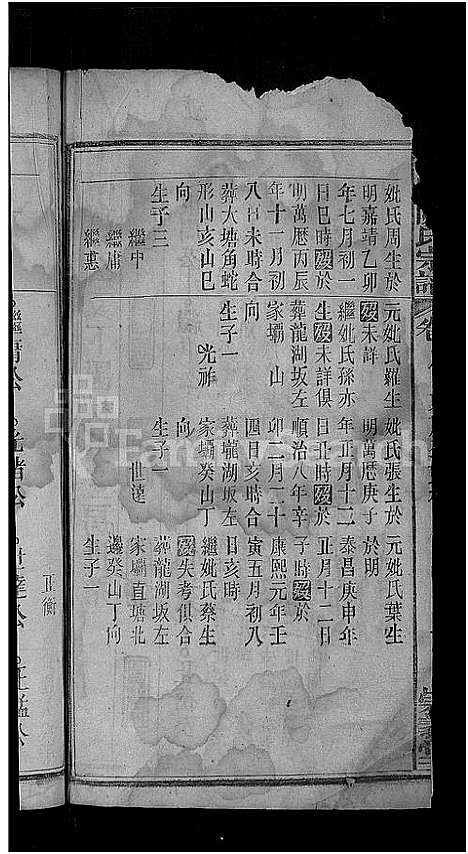 妣氏周生於
明嘉靖乙卯
年七月初一
日巳時歿於
明萬曆丙辰
年十一月初
八日未時合
葬大塘角蛇
形山亥山巳
向
生子三
繼中
繼庸
繼惠
元妣氏羅生
歿未詳
繼妣氏孫亦
生歿未詳俱
葬龍湖坂左
家壩 山
向
生子一
光祚
妣氏張生於
明萬曆庚子
年正月十二
日丑時歿於
順治八年辛
卯二月二十
四日亥時合
葬龍湖坂左
家壩癸山丁
向
生子一
世達
元妣氏葉生
於期
泰昌庚申年
正月十二日
子時歿於
康熙元年壬
寅五月初八
日亥時
繼妣氏蔡生
歿失考俱合
葬龍湖坂左
家壩直塘北
邊癸山丁向
生子一
正衡
氏宗譜
卷